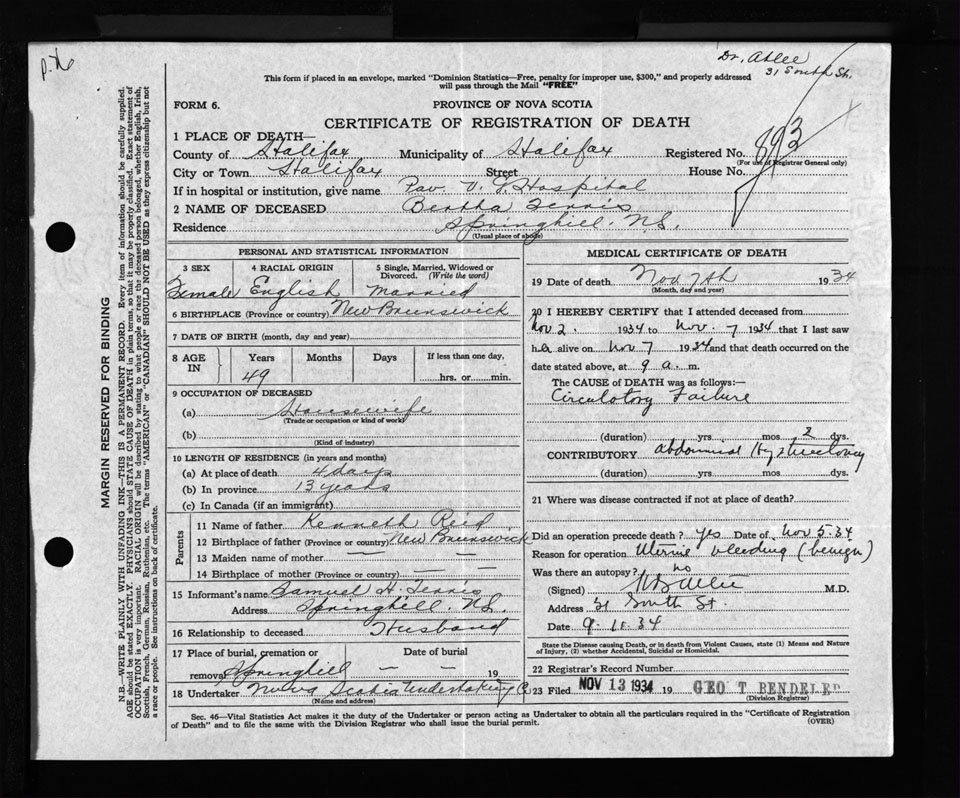 p.x6
Dr. Atlee
31 South St.
This form if placed in an envelope, marked "Dominion Statistics—Free, penalty for improper use, $300," and properly addressed
will pass through the Mail "FREE"
FORM 6. PROVINCE OF NOVA SCOTIA
CERTIFICATE OF REGISTRATION OF DEATH
1 PLACE OF DEATH—
County of Halifax Municipality of Halifax Registered No. 893
(For use of Registrar General only)
City or Town Halifax Street House No.
If in hospital or institution, give name Pav. V. G. Hospital
2 NAME OF DECEASED Bertha Tennis
Residence Springhill. N.S.
(Usual place of abode)
PERSONAL AND STATISTICAL INFORMATION
3 SEX 4 RACIAL ORIGIN 5 Single, Married, Widowed or
Divorced. (Write the word)
Female English Married
6 BIRTHPLACE (Province or country) New Brunswick
7 DATE OF BIRTH (month, day and year)
8 AGE IN Years Months Days If less than one day,
49 hrs. or min.
9 OCCUPATION OF DECEASED
(a) Housewife
(Trade or occupation or kind of work)
(b)
(Kind of industry)
10 LENGTH OF RESIDENCE (in years and months)
(a) At place of death 4 days
(b) In province 13 years
(c) In Canada (if an immigrant)
Parents
11 Name of father Kenneth Reid
12 Birthplace of father (Province or country) New Brunswick
13 Maiden name of mother — —
14 Birthplace of mother (Province or country) — —
15 Informant's name Samuel H. Tennis
Address Springhill. N.S.
16 Relationship to deceased Husband
17 Place of burial, cremation or Date of burial
removal Springhill — — 19
18 Undertaker Nova Scotia Undertaking Co
(Name and address)
MEDICAL CERTIFICATE OF DEATH
19 Date of death Nov 7th 1934
(Month, day and year)
20 I HEREBY CERTIFY that I attended deceased from
Nov 2. 1934 to Nov. 7 1934 that I last saw
her alive on Nov 7 1934 and that death occurred on the
date stated above, at 9 a. m.
The CAUSE of DEATH was as follows:—
Circulatory Failure
(duration) yrs. mos. 2 dys.
CONTRIBUTORY abdominal Hysterectomy
(duration) yrs. mos. dys.
21 Where was disease contracted if not at place of death?
Did an operation precede death? yes Date of Nov 5-34
Reason for operation Uterine bleeding (benign)
Was there an autopsy? no
(Signed) H B Atlee M.D.
Address 31 South St.
Date 9-11-34
State the Disease causing Death, or in death from Violent Causes, state (1) Means and Nature
of Injury, (2) whether Accidental, Suicidal or Homicidal.
22 Registrar's Record Number
23 Filed NOV 13 1934 19 GEO T BENDELER
(Division Registrar)
Sec. 46—Vital Statistics Act makes it the duty of the Undertaker or person acting as Undertaker to obtain all the particulars required in the "Certificate of Registration
of Death" and to file the same with the Division Registrar who shall issue the burial permit. (OVER)
MARGIN RESERVED FOR BINDING
N.B.—WRITE PLAINLY WITH UNFADING INK—THIS IS A PERMANENT RECORD. Every item of information should be carefully supplied.
AGE should be stated EXACTLY. PHYSICIANS should STATE CAUSE OF DEATH in plain terms, so that it may be properly classified. Exact statement of
OCCUPATION is very important. RACIAL ORIGIN will be described by stating to what people or race the deceased person belonged, whether English, Irish,
Scottish, French, German, Russian, Ruthenian, etc. The terms "AMERICAN" or "CANADIAN" SHOULD NOT BE USED as they express citizenship but not
a race or people. See instructions on back of certificate.